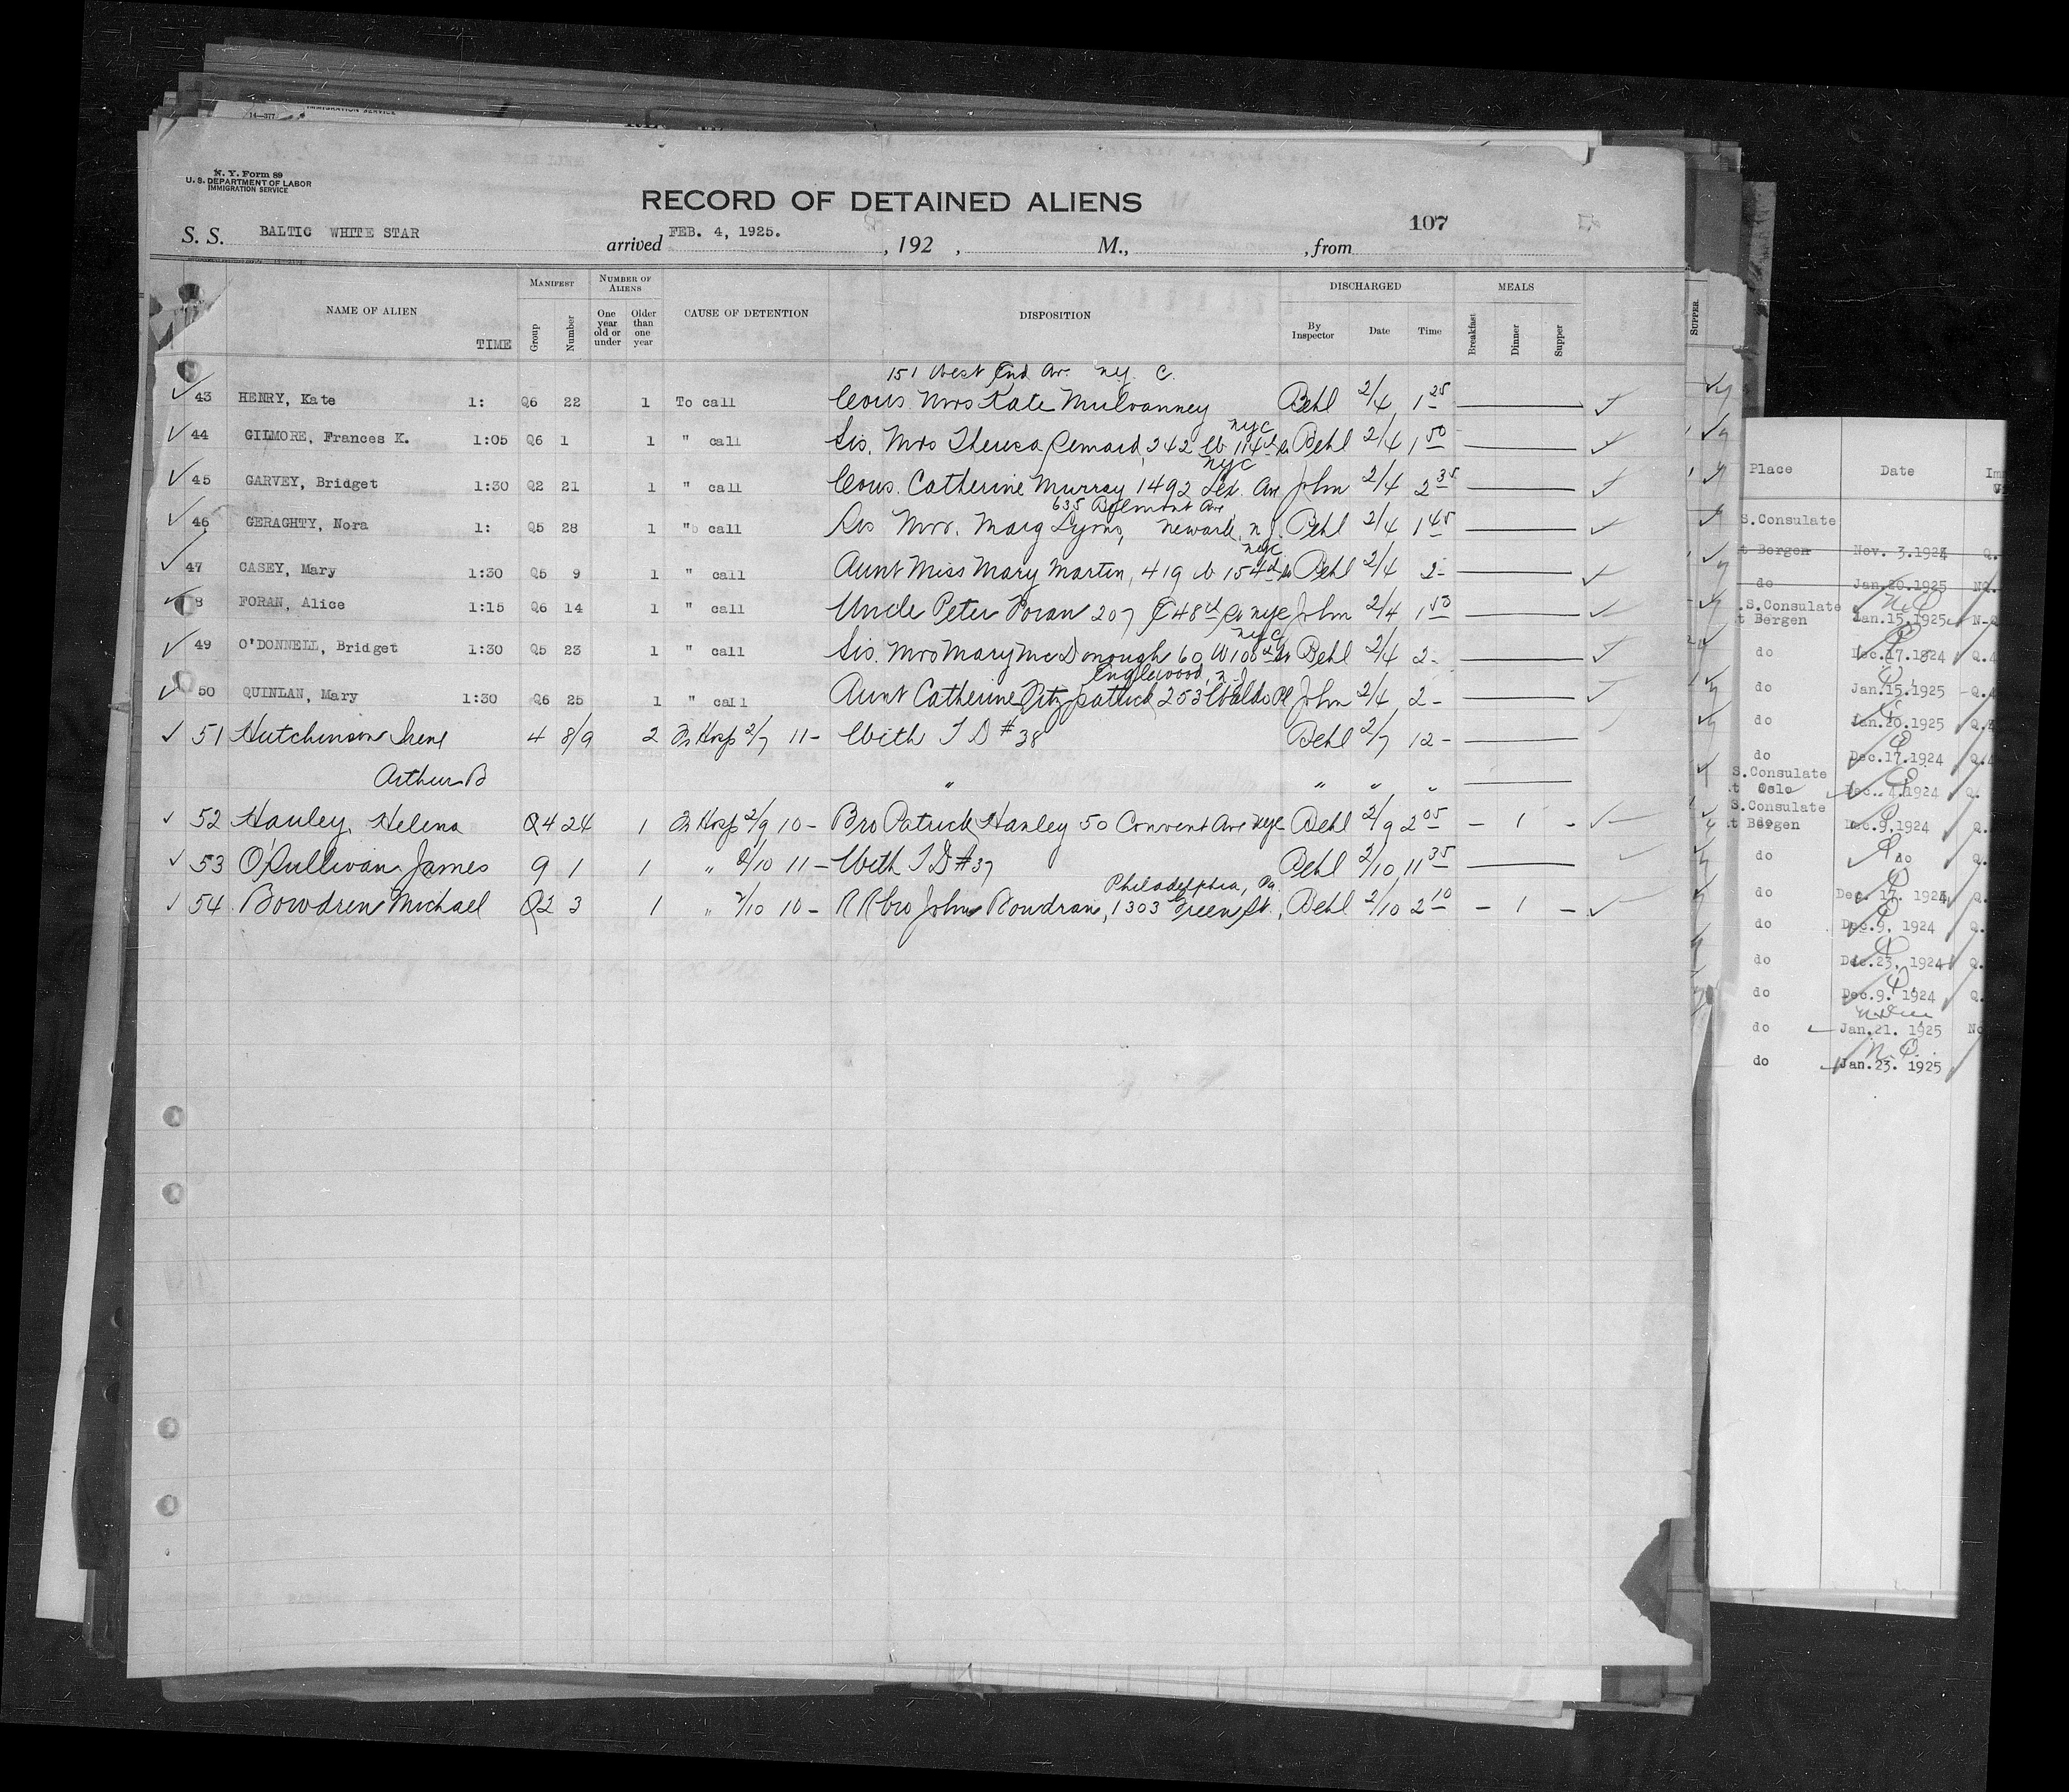 14—377
IMMIGRATION SERVICE
N. Y. Form 89
U. S. DEPARTMENT OF LABOR
IMMIGRATION SERVICE
RECORD OF DETAINED ALIENS
107
S. S. BALTIC WHITE STAR arrived FEB. 4, 1925. , 192 , M., , from
NAME OF ALIEN TIME MANIFEST Group Number NUMBER OF ALIENS One year old or under Older than one year CAUSE OF DETENTION DISPOSITION DISCHARGED By Inspector Date Time MEALS Breakfast Dinner Supper
151 West End Av. N.Y. C.
43 HENRY, Kate 1: Q6 22 1 To call Cous. Mrs Kate Mulvanney Behl 2/4 1 25
nyc
44 GILMORE, Frances K. 1:05 Q6 1 1 " call Sis. Mrs Theresa 242 W 114 Behl 2/4 1 50
nyc
45 GARVEY, Bridget 1:30 Q2 21 1 " call Cous. Catherine Murray 1492 Lex. Av John 2/4 2 35
635 Belmont Ave
46 GERAGHTY, Nora 1: Q5 28 1 " call Sis Mrs. Marg Lyons, Newark, n.j. Behl 2/4 1 45
nyc
47 CASEY, Mary 1:30 Q5 9 1 " call Aunt Miss Mary Martin, 419 W 154 Behl 2/4 2-
8 FORAN, Alice 1:15 Q6 14 1 " call Uncle Peter Foran 207 E 48 St nyc John 2/4 1 50
nyc
49 O'DONNELL, Bridget 1:30 Q5 23 1 " call Sis. Mrs Mary McDonough 60 W 108 Behl 2/4 2-
Englewood, n.j.
50 QUINLAN, Mary 1:30 Q6 25 1 " call Aunt Catherine Fitzpatrick 253 Waldo Pl John 2/4 2-
51 Hutchinson Irene 4 8/9 2 Hosp 2/7 11- With T D #38 Behl 2/7 12-
Arthur B " " " "
52 Hanley, Helena Q4 24 1 Hosp 2/9 10- Bro Patrick Hanley 50 Convent Ave nyc Behl 2/9 2 05 - 1 -
53 O'Sullivan James 9 1 1 " 2/10 11- With T D #37 Behl 2/10 11 35
Philadelphia, Pa.
54 Bowdren Michael Q2 3 1 " 2/10 10- R R bro John Bowdran, 1303 Green St., Behl 2/10 2 10 - 1 -
SUPPER.
Place Date
S.Consulate
t Bergen Nov. 3.1924 Q.
do Jan.20.1925 NQ.
.S.Consulate
t Bergen Jan.15.1925 N-Q
do Dec.17.1924 Q.4
do Jan.15.1925 -Q.4
do Jan.20.1925 Q.
do Dec.17.1924 Q.4
S.Consulate
t Oslo Dec. 4.1924 Q.
S.Consulate
t Bergen Dec.9,1924 Q.
do do Q.
do Dec. 17. 1924 Q.
do Dec.9, 1924 Q.
do Dec.23, 1924 Q.
do Dec.9. 1924 Q.
do Jan.21. 1925 No
do Jan.23. 1925